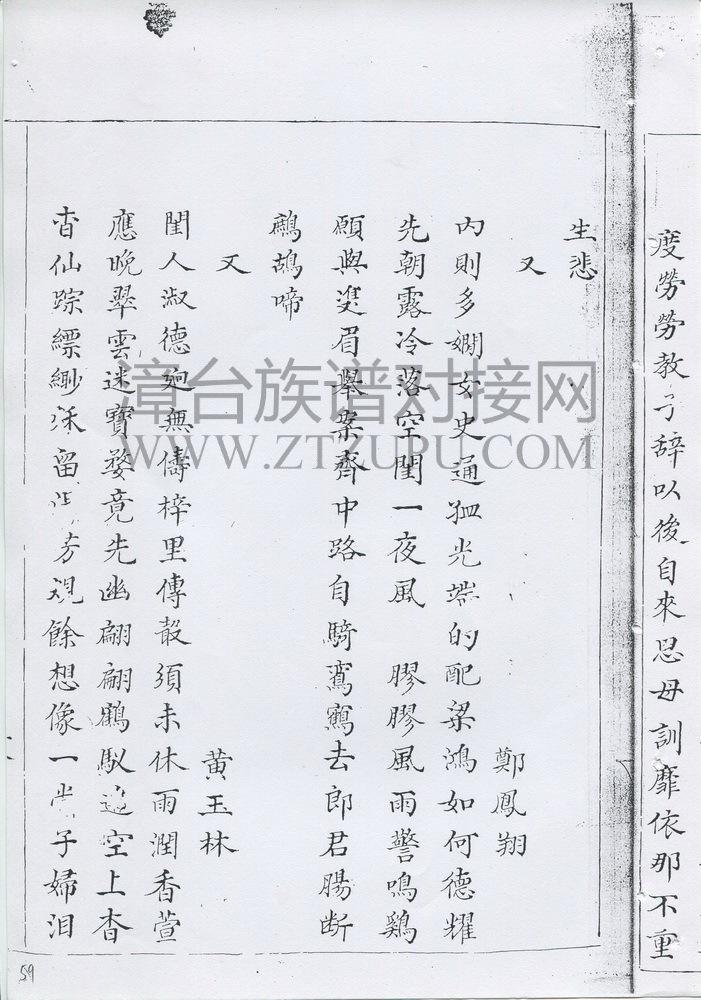 度勞勞教子辭以後自來思母訓靡依那不重
生悲
又
鄭鳳翔
內則多嫻女史通孤光端的配梁鴻如何德耀
先朝露冷落空閨一夜風 膠膠風雨警鳴鷄
願與雙眉舉案齊中路自騎鸞鶴去郎君腸斷
鷓鴣啼
又
黄玉林
閨人淑德迥無儔梓里傳
須未休雨潤香萱
應晚翠雲迷寶婺竟先幽翩翩鶴馭遠空上杳
杳仙踪縹緲
留
芳規餘想像一
子婦泪
漳台族谱对接网
WWW.ZTZUPU.COM
59